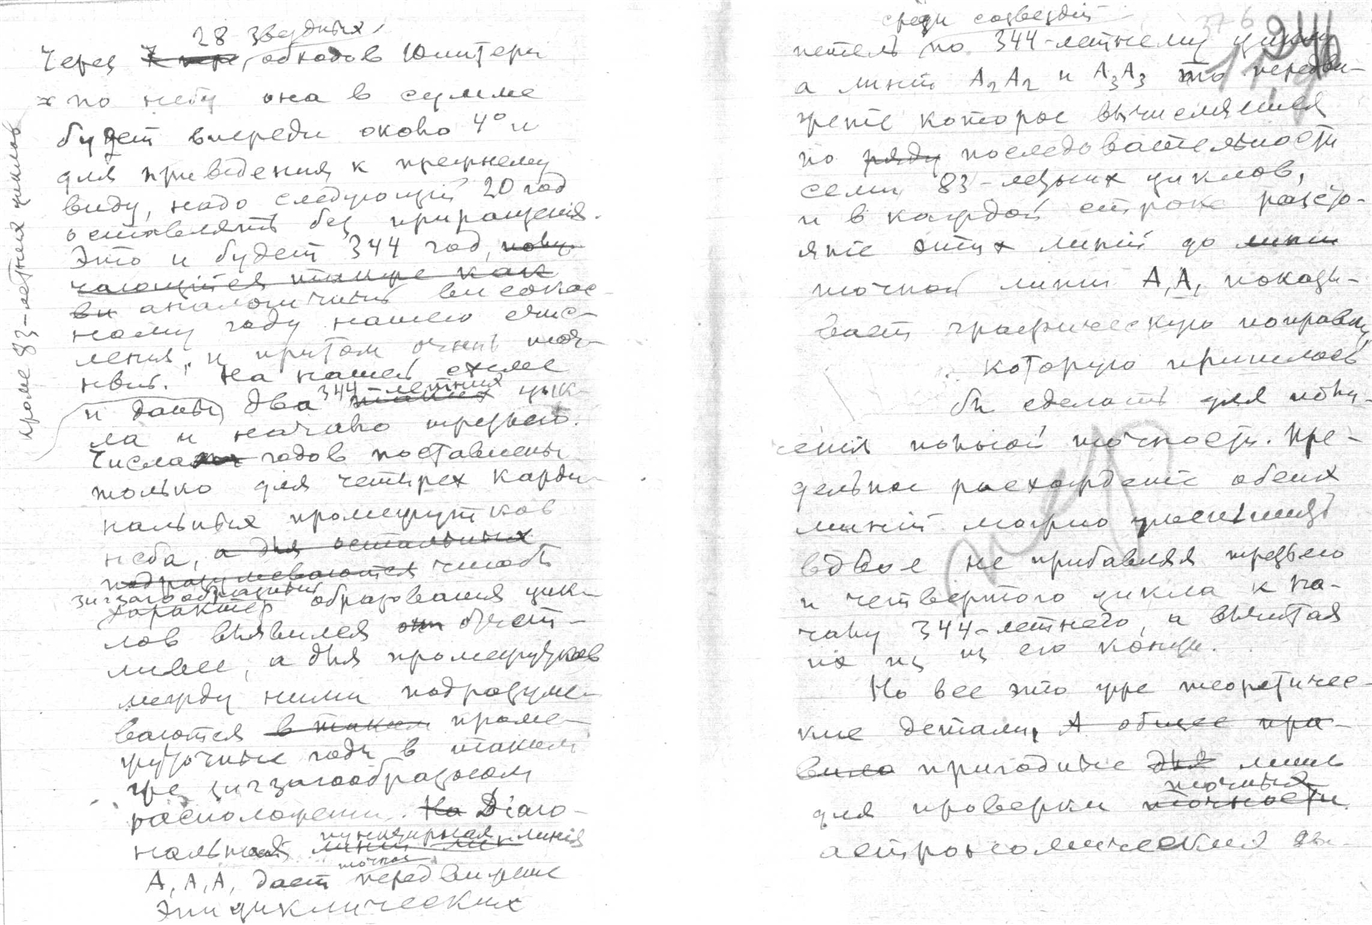 28 звездных
Через обходов Юпитера
по небу она в сумме
будет впереди около 4° и
для приведения к прежнему
виду, надо следующий 20 год
оставлять без приращения.
Это и будет 344 год,
чающийся как
аналогичный високос-
ному году нашего счис-
ления, и притом очень точ-
ный. На нашей схеме
344-летних
и даны два цик-
ла и начало третьего.
кроме 83-летних циклов
Числа годов поставлены
только для четырех карди-
нальных промежутков
неба, а для остальных
подразумеваются чтобы
зигзагообразный
характер образования цик-
лов выявился отчет-
ливее, а для промежутков
между ними подразуме-
ваются в таком проме-
жуточные годы в таком
же зигзагообразном
расположении. На Диаго-
нальная пунктирная линия
точное
А, А, А, дает передвижение
Эпициклических
среди созвездий
петель по 344-летнему циклу
а линии А₂А₂ и А₃А₃ то передви-
жение которое вычисляется
по ряду последовательности
семи 83-летних циклов,
и в каждой строке рассто-
яние этих линий до линии
точной линии А, А, показы-
вает графическую поправку,
которую пришлось
бы сделать для полу-
чения полной точности. Пре-
дельное расхождение обеих
линий можно уменьшить
вдвое не прибавляя третьего
и четвертого цикла к на-
чалу 344-летнего, а вычитая
их из его конца.
Но все это уже теоретичес-
кие детали, А общее пра-
вило пригодные для лишь
точных
для проверки точности
астрономических
пер